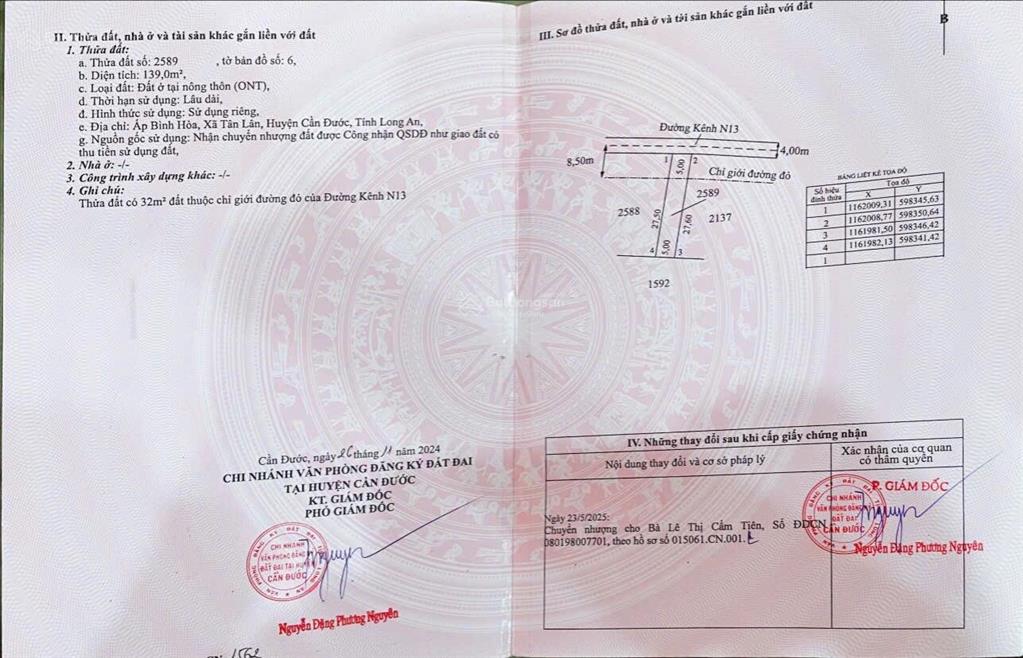 II. Thửa đất, nhà ở và tài sản khác gắn liền với đất
1. Thửa đất:
a. Thửa đất số: 2589 , tờ bản đồ số: 6,
b. Diện tích: 139,0m²,
c. Loại đất: Đất ở tại nông thôn (ONT),
d. Thời hạn sử dụng: Lâu dài,
đ. Hình thức sử dụng: Sử dụng riêng,
e. Địa chỉ: Ấp Bình Hòa, Xã Tân Lân, Huyện Cần Đước, Tỉnh Long An,
g. Nguồn gốc sử dụng: Nhận chuyển nhượng đất được Công nhận QSDĐ như giao đất có
thu tiền sử dụng đất,
2. Nhà ở: -/-
3. Công trình xây dựng khác: -/-
4. Ghi chú:
Thửa đất có 32m² đất thuộc chỉ giới đường đỏ của Đường Kênh N13
Cần Đước, ngày 26 tháng 11 năm 2024
CHI NHÁNH VĂN PHÒNG ĐĂNG KÝ ĐẤT ĐAI
TẠI HUYỆN CẦN ĐƯỚC
KT. GIÁM ĐỐC
PHÓ GIÁM ĐỐC
CHI NHÁNH
VĂN PHÒNG ĐĂNG
ĐẤT ĐAI TẠI
CẦN ĐƯỚC
Nguyễn Đặng Phương Nguyên
1562
III. Sơ đồ thửa đất, nhà ở và tài sản khác gắn liền với đất
B
Đường Kênh N13
4,00m
8,50m
1 5,00 2
Chỉ giới đường đỏ
2589
2588
27,50
27,60
2137
4 5,00 3
1592
BẢNG LIỆT KÊ TỌA ĐỘ
Số hiệu đỉnh thửa
Tọa độ
X Y
1 1162009,31 598345,63
2 1162008,77 598350,64
3 1161981,50 598346,42
4 1161982,13 598341,42
1
IV. Những thay đổi sau khi cấp giấy chứng nhận
Nội dung thay đổi và cơ sở pháp lý
Xác nhận của cơ quan
có thẩm quyền
Ngày 23/5/2025:
Chuyển nhượng cho Bà Lê Thị Cẩm Tiên, Số ĐDCN
080198007701, theo hồ sơ số 015061.CN.001.
P. GIÁM ĐỐC
CHI NHÁNH
VĂN PHÒNG ĐĂNG
ĐẤT ĐAI
CẦN ĐƯỚC
Nguyễn Đặng Phương Nguyên
Batdongsan